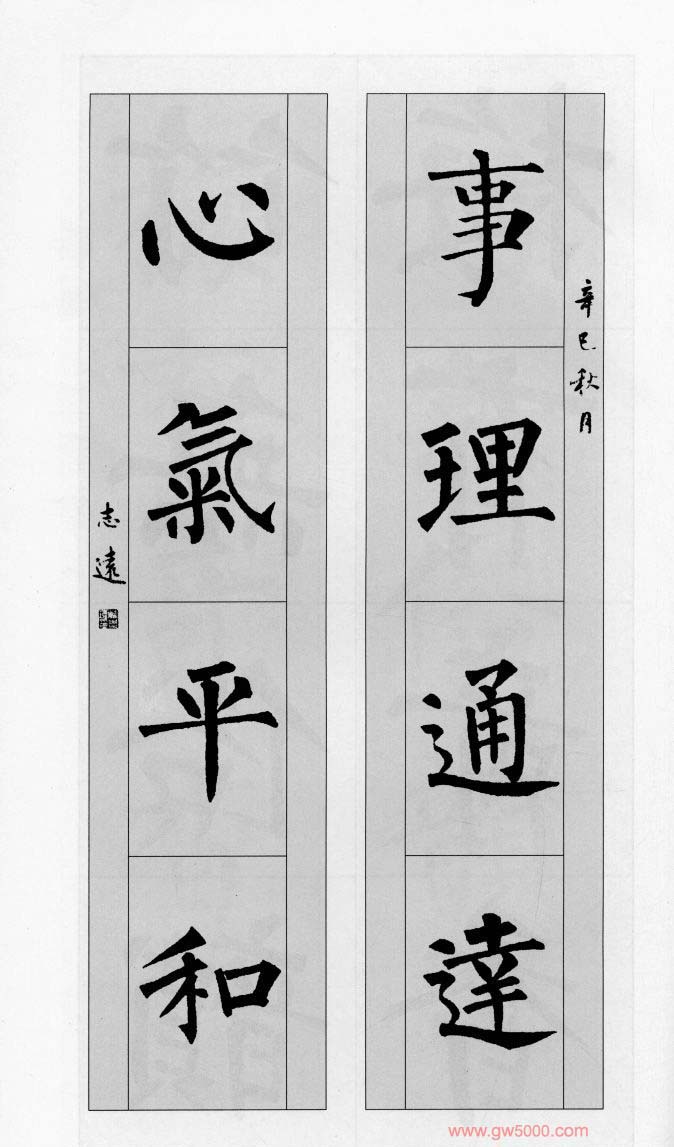 辛巳秋月
事理通達
心氣平和
志遠
www.gw5000.com